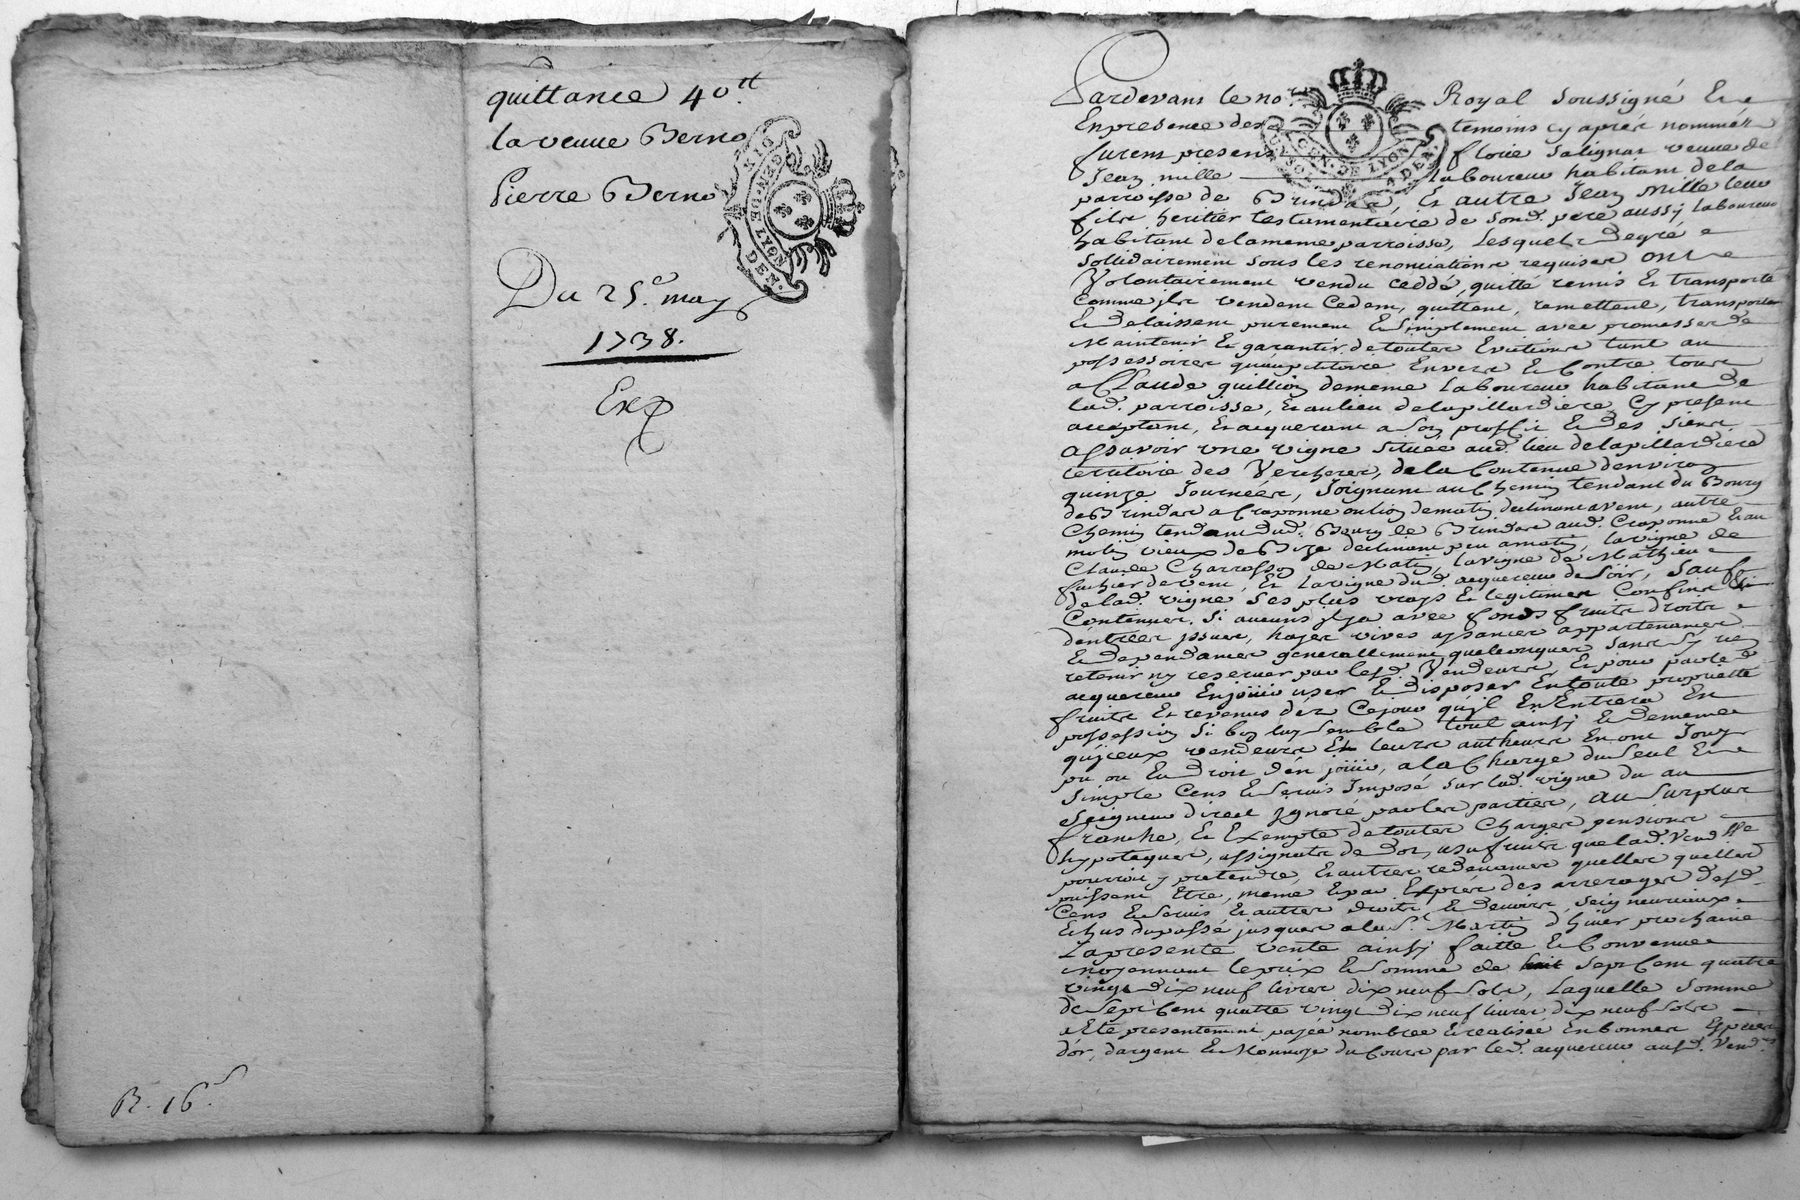 quittance 40tt
la veuve Berne
Pierre Berne
GEN. DE LYON
Du 25e may
1738.
Exp
R. 16s
Pardevant le nore Royal soussigné Et
En presence des temoins cy aprés nommés
furent presens florie Salignat veuve de
Jean mille laboureur habitant de la
parroisse de Brindas, Et autre Jean Mille leur
fils heritier testamentaire de sond. pere aussy laboureur
habitant de la meme parroisse, Lesquels de gré
solidairement sous les renonciations requises ont
Volontairement vendu ceddé, quitté remis Et transporté
Comme ils vendent Cedent, quittent, remettent, transportent
Et delaissent purement Et simplement avec promesses de
Maintenir Et garantir de toutes Evictions tant au
possessoires qu'au petitoire Envers Et Contre tous
a Claude guillion de meme Laboureur habitant de
lad. parroisse, Et au lieu de la pillardiere Cy present
acceptant, Et acquerant a son proffit Et des siens
Assavoir une vigne située aud. lieu de la pillardiere
territoire des Vercheres, de la Contenue d'environ
quinze Journées, Joignant au Chemin tendant du Bourg
de Brindas a Craponne de matin declinant a vent, autre
Chemin tendant dud. Bourg de Brindas aud. Craponne Et au
molin vieux de declinant peu a matin, la vigne de
Claude de Matin, la vigne de Mathieu
de vent, Et la vigne dud. acquereur de soir, sauf
de lad. vigne ses plus vrays Et legitimes Confins
Contenues. Si aucuns il y a avec fonds fruits droits
d'entrées issues, hayes vives aysances appartenances
Et dependances generallement quelconques sans s'y rien
retenir ny reserver par lesd. Vendeurs, Et pour par led.
acquereur En jouir user Et disposer En toute proprieté
fruits Et revenus dez Ce jour qu'il En Entrera En
possession si bon luy semble tout ainsy Et de meme
qu'iceux vendeurs Et leurs autheurs En ont Jouy
pu ou Eu droit d'en jouir, a la Charge du seul Et
simple Cens Et servis Imposé sur lad. vigne du au
Seigneur direct Ignoré par les parties, au surplus
franche, Et Exempte de toutes Charges pensions
hypoteques, assignats de dot, usufruits que lad. Venderesse
pourroit y pretendre, Et autres redevances quelles quelles
puissent Etre, meme Et par Exprés des arrerages desd.
Cens Et servis Et autres droits Et devoirs seigneuriaux
Echus du passé jusques a la St. Martin d'hiver prochaine
La presente vente ainsy faitte Et Convenue
moyennant le prix Et somme de sept Cent quatre
vingt dix neuf livres dix neuf sols, Laquelle somme
de sept Cent quatre vingt dix neuf livres dix neuf sols
a Eté presentement payée nombrée Et realisée En bonnes Especes
d'or, d'argent Et Monnoye du Cours par led. acquereur ausd. Vendrs